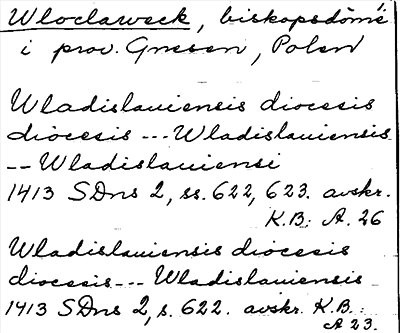 Wloclaweck, biskopsdöme
i prov. Gnesen, Polen
Wladislauiensis diocesis
diocesis --- Wladislauiensis
-- Wladislauiensi
1413 SDns 2, ss. 622, 623. avskr.
K.B: A. 26
Wladislauiensis diocesis
diocesis --- Wladislauiensis
1413 SDns 2, s. 622. avskr. K.B:
A 23.